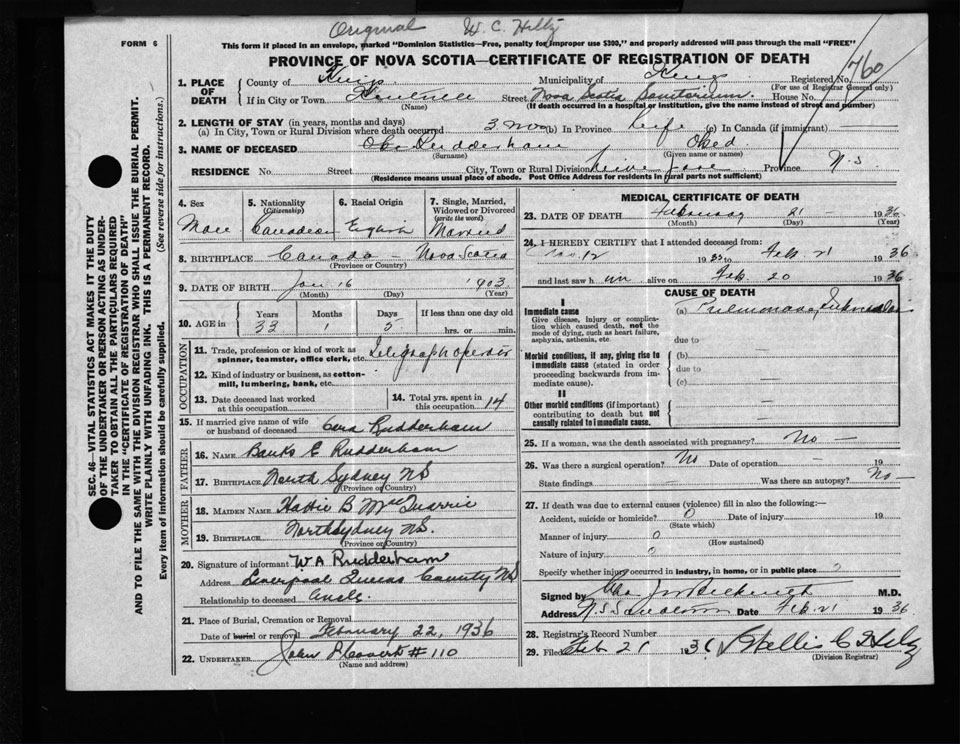 Original W. C. Hiltz
FORM 6
This form if placed in an envelope, marked "Dominion Statistics—Free, penalty for improper use $300," and properly addressed will pass through the mail "FREE"
PROVINCE OF NOVA SCOTIA—CERTIFICATE OF REGISTRATION OF DEATH
1. PLACE OF DEATH
County of Kings Municipality of Kings Registered No. 760
(For use of Registrar General only)
If in City or Town Street Nova Scotia Sanitorium House No.
(Name) (If death occurred in a hospital or institution, give the name instead of street and number)
2. LENGTH OF STAY (in years, months and days)
(a) In City, Town or Rural Division where death occurred 3 mos (b) In Province Life (c) In Canada (if immigrant)
3. NAME OF DECEASED Rudderham Obed
(Surname) (Given name or names)
RESIDENCE No. Street City, Town or Rural Division Province N.S
(Residence means usual place of abode. Post Office Address for residents in rural parts not sufficient)
SEC. 46—VITAL STATISTICS ACT MAKES IT THE DUTY
OF THE UNDERTAKER OR PERSON ACTING AS UNDER-
TAKER TO OBTAIN ALL THE PARTICULARS REQUIRED
IN THE "CERTIFICATE OF REGISTRATION OF DEATH"
AND TO FILE THE SAME WITH THE DIVISION REGISTRAR WHO SHALL ISSUE THE BURIAL PERMIT.
WRITE PLAINLY WITH UNFADING INK. THIS IS A PERMANENT RECORD.
Every item of information should be carefully supplied. (See reverse side for instructions.)
4. Sex
Male
5. Nationality
(Citizenship)
Canadian
6. Racial Origin
English
7. Single, Married, Widowed or Divorced
(write the word)
Married
8. BIRTHPLACE Canada — Nova Scotia
(Province or Country)
9. DATE OF BIRTH Jan 16 1903
(Month) (Day) (Year)
10. AGE in Years Months Days If less than one day old
33 1 5 hrs. or min.
OCCUPATION
11. Trade, profession or kind of work as
spinner, teamster, office clerk, etc. Telegraph operator
12. Kind of industry or business, as cotton-
mill, lumbering, bank, etc.
13. Date deceased last worked
at this occupation
14. Total yrs. spent in
this occupation 14
15. If married give name of wife
or husband of deceased Rudderham
FATHER
16. NAME Banks E Rudderham
17. BIRTHPLACE North Sydney NS
(Province or Country)
MOTHER
18. MAIDEN NAME Hattie B McQuarrie
19. BIRTHPLACE North Sydney N.S.
(Province or Country)
20. Signature of informant W A Rudderham
Address Liverpool Queens County NS
Relationship to deceased Uncle
21. Place of Burial, Cremation or Removal
Date of burial or removal February 22, 1936
22. UNDERTAKER John # 110
(Name and address)
MEDICAL CERTIFICATE OF DEATH
23. DATE OF DEATH February 21 1936
(Month) (Day) (Year)
24. I HEREBY CERTIFY that I attended deceased from:
12 1935 to Feb 21 1936
and last saw him alive on Feb 20 1936
CAUSE OF DEATH
I
Immediate cause (a) Pulmonary Tuberculosis
Give disease, injury or complica-
tion which caused death, not the
mode of dying, such as heart failure,
asphyxia, asthenia, etc.
due to
Morbid conditions, if any, giving rise to
immediate cause (stated in order
proceeding backwards from im-
mediate cause).
(b)
due to
(c)
II
Other morbid conditions (if important)
contributing to death but not
causally related to immediate cause.
25. If a woman, was the death associated with pregnancy? No —
26. Was there a surgical operation? No Date of operation — 19
State findings — Was there an autopsy? No
27. If death was due to external causes (violence) fill in also the following:—
Accident, suicide or homicide? 0 Date of injury 19
(State which)
Manner of injury 0
(How sustained)
Nature of injury 0
Specify whether injury occurred in industry, in home, or in public place 0
Signed by M.D.
Address Date Feb. 21 1936
28. Registrar's Record Number
29. Filed Feb 21 1936 Hiltz
(Division Registrar)